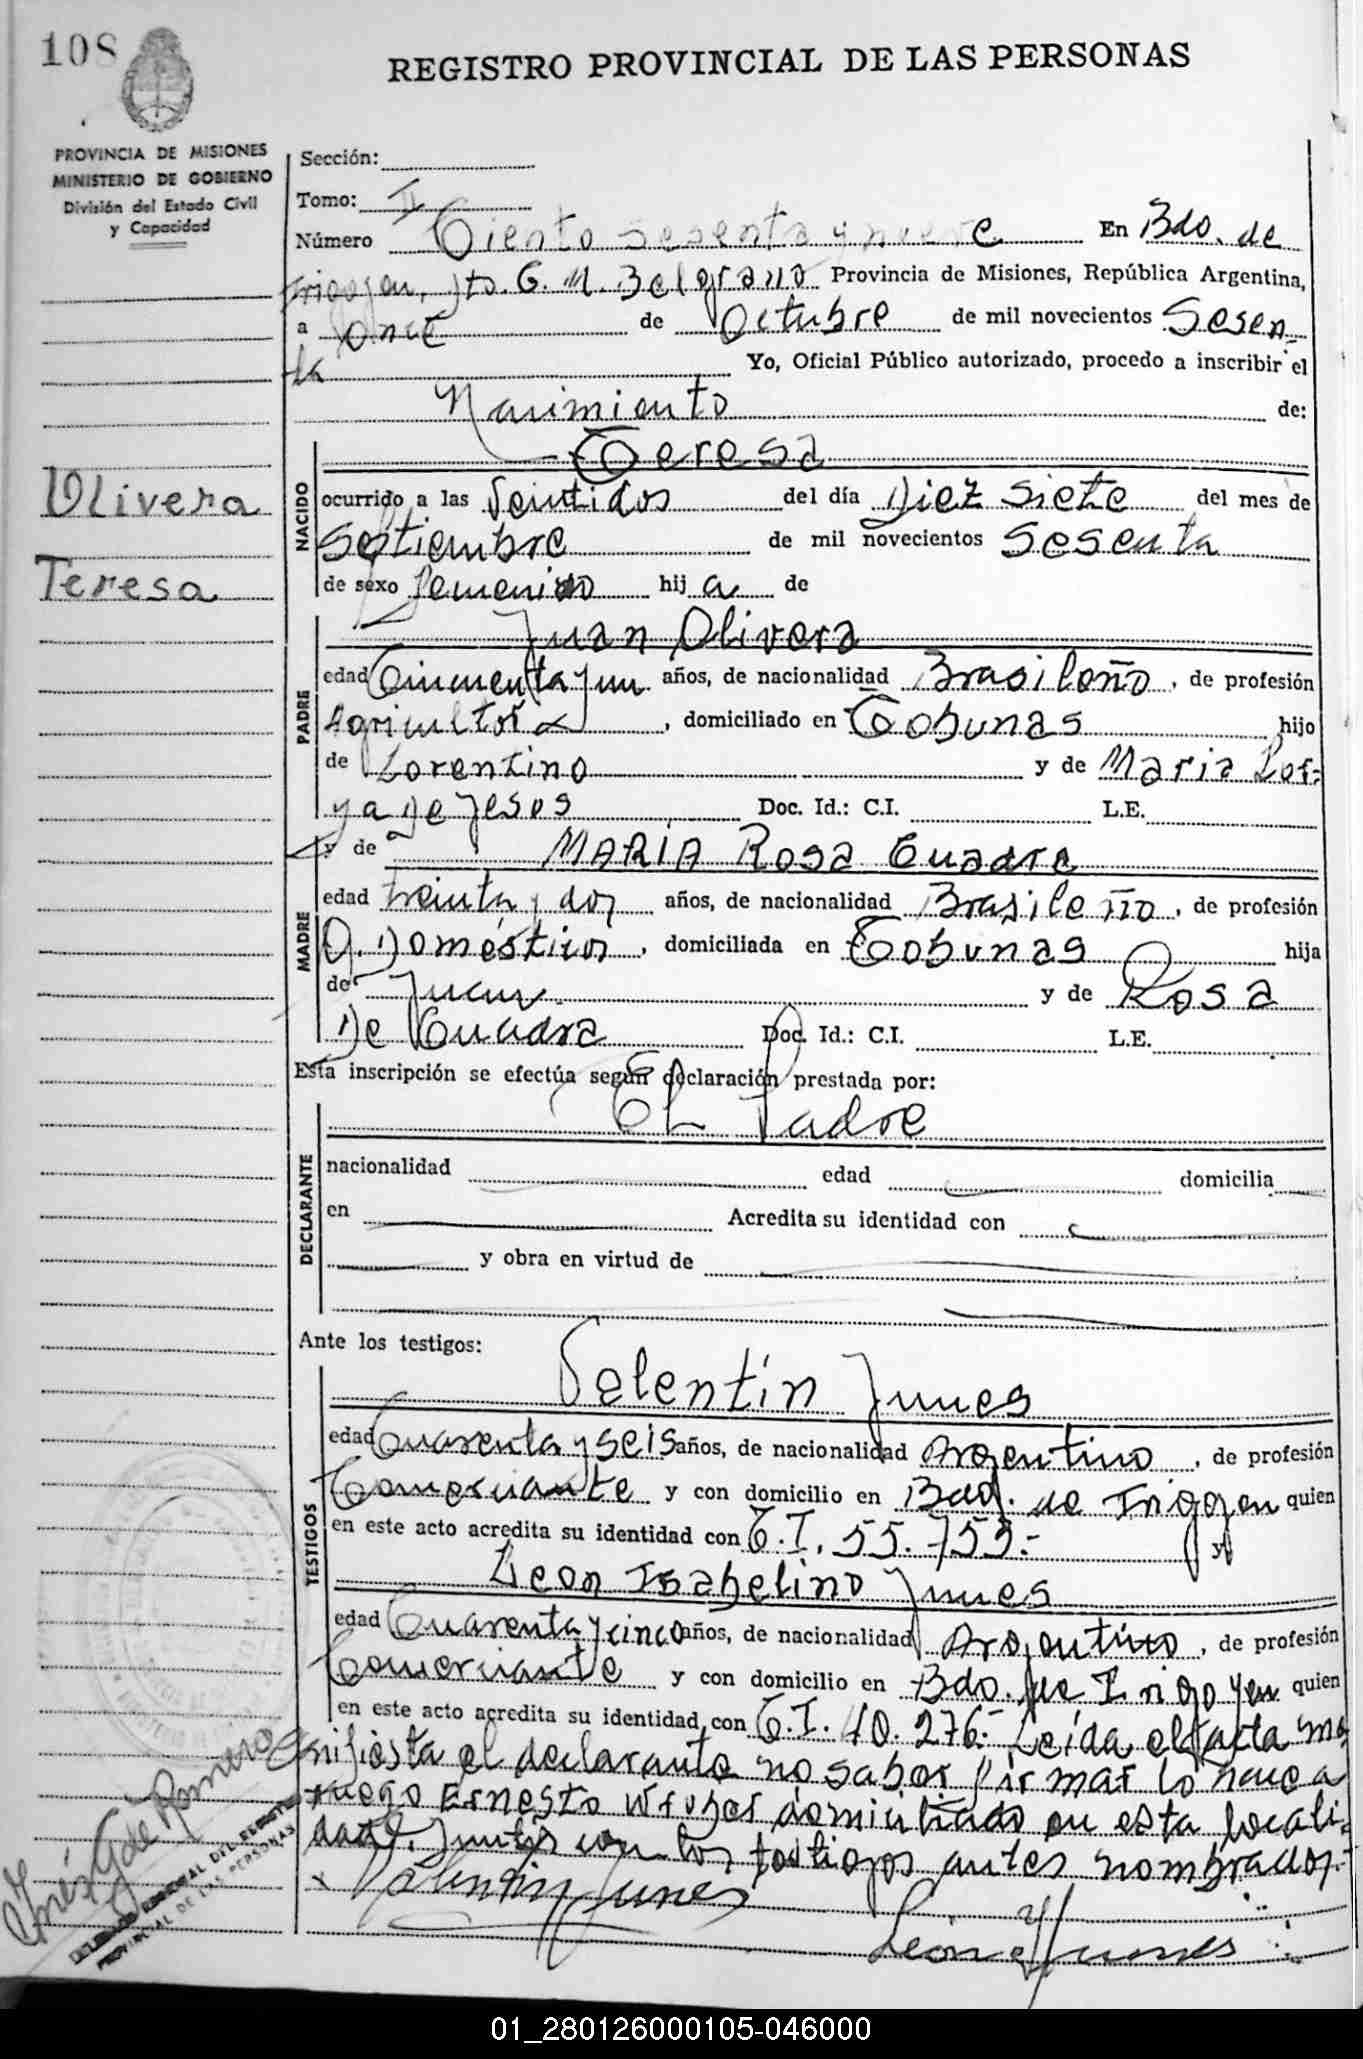 108
REGISTRO PROVINCIAL DE LAS PERSONAS
PROVINCIA DE MISIONES
MINISTERIO DE GOBIERNO
División del Estado Civil
y Capacidad
Sección:
Tomo: II
Número Ciento sesenta y nueve En Bdo. de
Irigoyen, Dto. G. M. Belgrano Provincia de Misiones, República Argentina,
a once de Octubre de mil novecientos Sesen
ta Yo, Oficial Público autorizado, procedo a inscribir el
Nacimiento de:
Teresa
Olivera
Teresa
NACIDO
ocurrido a las Veintidos del día Diez Siete del mes de
Septiembre de mil novecientos Sesenta
de sexo Femenino hij a de
Juan Olivera
PADRE
edad Cincuenta y un años, de nacionalidad Brasileño, de profesión
Agricultor, domiciliado en Tobunas hijo
de Lorentino y de Maria
de Jesos Doc. Id.: C.I. L.E.
y de MARIA Rosa Cuadra
MADRE
edad treinta y dos años, de nacionalidad Brasileño, de profesión
Q. Domésticos, domiciliada en Tobunas hija
de Juan y de Rosa
De Cuadra Doc. Id.: C.I. L.E.
Esta inscripción se efectúa según declaración prestada por:
El Padre
DECLARANTE
nacionalidad edad domicilia
en Acredita su identidad con
y obra en virtud de
Ante los testigos:
Valentín Junes
TESTIGOS
edad Cuarenta y seis años, de nacionalidad Argentino, de profesión
Comerciante y con domicilio en Bdo. de Irigoyen quien
en este acto acredita su identidad con C.I. 55.755.- y
Leon Isabelino Junes
edad Cuarenta y cinco años, de nacionalidad Argentino, de profesión
Comerciante y con domicilio en Bdo. de Irigoyen quien
en este acto acredita su identidad con C.I. 40.276.- Leída el acta ma
nifiesta el declarante no saber firmar lo hace a
ruego Ernesto domiciliado en esta locali
dad. Juntos con los testigos antes nombrados.-
Valentín Junes
León Junes
Inés G de Romero
DEL REGISTRO
PROVINCIAL DE LAS PERSONAS
01_280126000105-046000